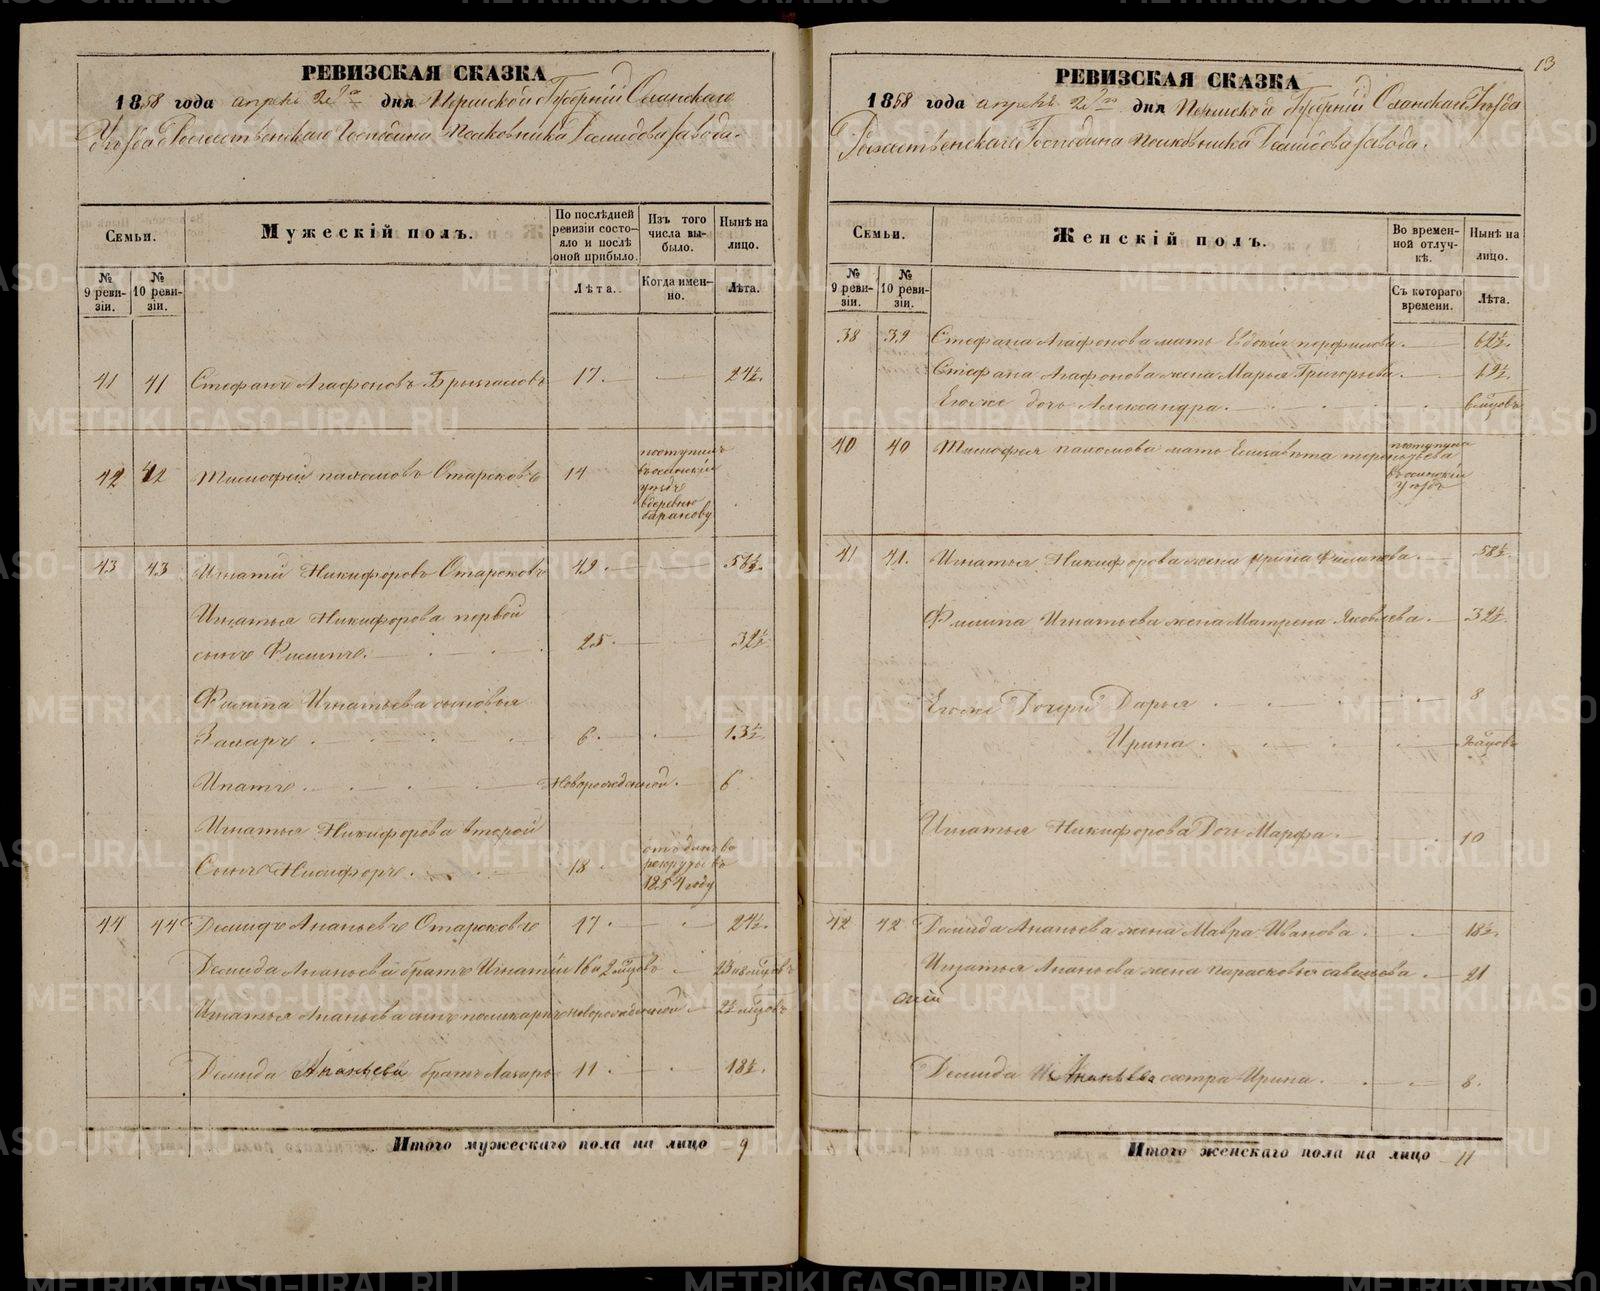 РЕВИЗСКАЯ СКАЗКА
1858 года апреля 2го дня Пермской Губернiи Осинскаго
Уезда Рождественскаго Господина Полковника Демидова завода.
Семьи.
Мужескiй полъ.
По послѣдней ревизiи состояло и послѣ оной прибыло.
Изъ того числа выбыло.
Нынѣ на лицо.
№ 9 ревизiи.
№ 10 ревизiи.
Лѣта.
Когда именно.
Лѣта.
41 41 Стефанъ Агафоновъ 17. 24½.
42 42 Тимофей Отароковъ 14 поступилъ въ осинскiй уездъ вдеревню баранову
43 43 Игнатiй Никифоровъ Отароковъ 49. 58½.
Игнатья Никифорова первой
сынъ Филипъ. 25. 32½
Филипа Игнатьева сыновья
Захаръ 6. 13½.
Ипатъ новорожденной. 6
Игнатья Никифорова второй
Сынъ Никифоръ. 18 отъданъ в рекруты въ 1854 году
44 44 Демидъ Ананьевъ Отароковъ 17. 24½.
Демида Ананьева братъ Игнатiй 16 и 2 мцовъ
Игнатья Ананьева сынъ поликарпъ новорожденной
Демида Ананьева братъ Лазарь 11 18½.
Итого мужескаго пола на лицо 9
13
РЕВИЗСКАЯ СКАЗКА
1858 года апреля 2го дня Пермской Губернiи Осинскаго Уезда
Рождественскаго Господина Полковника Демидова завода.
Семьи.
Женскiй полъ.
Во временной отлучкѣ.
Нынѣ на лицо.
№ 9 ревизiи.
№ 10 ревизiи.
Съ котораго времени.
Лѣта.
38 39 Стефана Агафонова мать Евдокiя перфилова. 62½.
Стефана Агафонова жена Марья Григорьева. 19½.
Егоже дочь Александра. 6 мцовъ
40 40 Тимофея мать Елизавета терентьева поступила въ осинскiй уездъ
41 41. Игнатья Никифорова жена ирина Филипова. 58½.
Филипа Игнатьева жена Матрена Яковлева. 32½.
Егоже Дочери Дарья 8
Ирина
Игнатья Никифорова Дочь Марфа. 10
42 42 Демида Ананьева жена Мавра Иванова 18½.
Игнатья Ананьева жена парасковья савельева 21
Демида Ананьева сестра Ирина. 8.
Итого женскаго пола на лицо 11